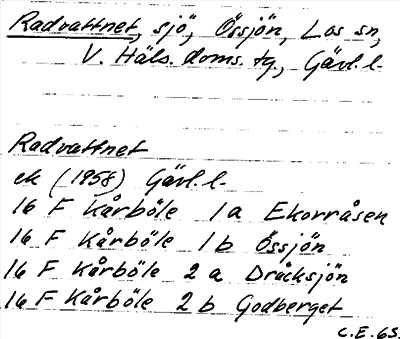 Radvattnet, sjö, Össjön, Los sn,
V. Häls. doms. tg., Gävl. l.
Radvattnet
ek (1958) Gävl. l.
16 F Kårböle 1a Ekorråsen
16 F Kårböle 1b Össjön
16 F Kårböle 2a Dråcksjön
16 F Kårböle 2b Godberget
C.E. 63.